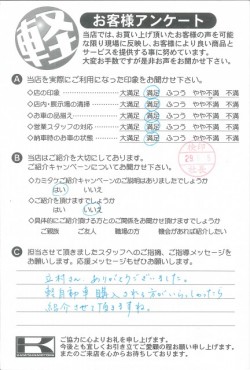 軽
お客様アンケート
当店では、お買い上げ頂いたお客様の声を可能
な限り現場に反映し、お客様により良い商品と
サービスを提供する事に努めています。
大変お手数ですが是非お声をお聞かせ下さい。
A 当店を実際にご利用になった印象をお聞かせ下さい。
◇店の印象 大満足 満足 ふつう やや不満 不満
◇店内・展示場の清掃 大満足 満足 ふつう やや不満 不満
◇お車の品揃え 大満足 満足 ふつう やや不満 不満
◇営業スタッフの対応 大満足 満足 ふつう やや不満 不満
◇納車時のお車の状態 大満足 満足 ふつう やや不満 不満
B 当店はご紹介を大切にしております。
ご紹介キャンペーンについてお聞かせ下さい。
◇カミタケご紹介キャンペーンのご説明はありましたでしょうか
はい いいえ
◇ご紹介を頂けますでしょうか
はい いいえ
◇具体的にご紹介頂ける方とのご関係をお聞かせ頂けますでしょうか
ご親戚 ご友人 職場の方 機会があれば紹介したい
C 担当させて頂きましたスタッフへのご指摘、ご指導メッセージを
お願いします。応援メッセージもぜひお願いします。
立村さん ありがとうございました。
軽自動車 購入される方がいらっしゃったら
紹介させて頂きますね。
ご協力に心よりお礼を申し上げます。
今後とも宜しくお引き立てご愛顧の程お願い申し上げます。
またのご来店を心からお待ちしております。